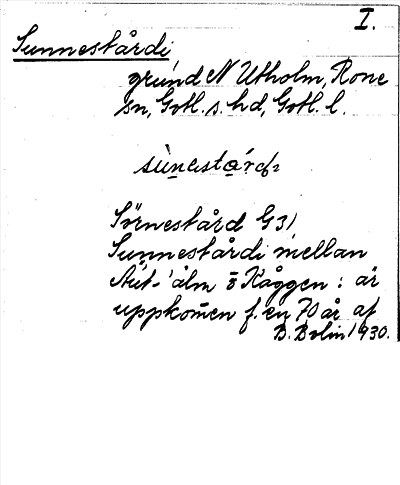 I.
Sunnestårdi
grund N Utholm, Rone
sn, Gotl. s. hd, Gotl. l.
Sörnestård G31
Sunnestårdi mellan
Aút-álm å Kåggen : är
uppkomen f. en 70 år af
B. Bolin 1930.